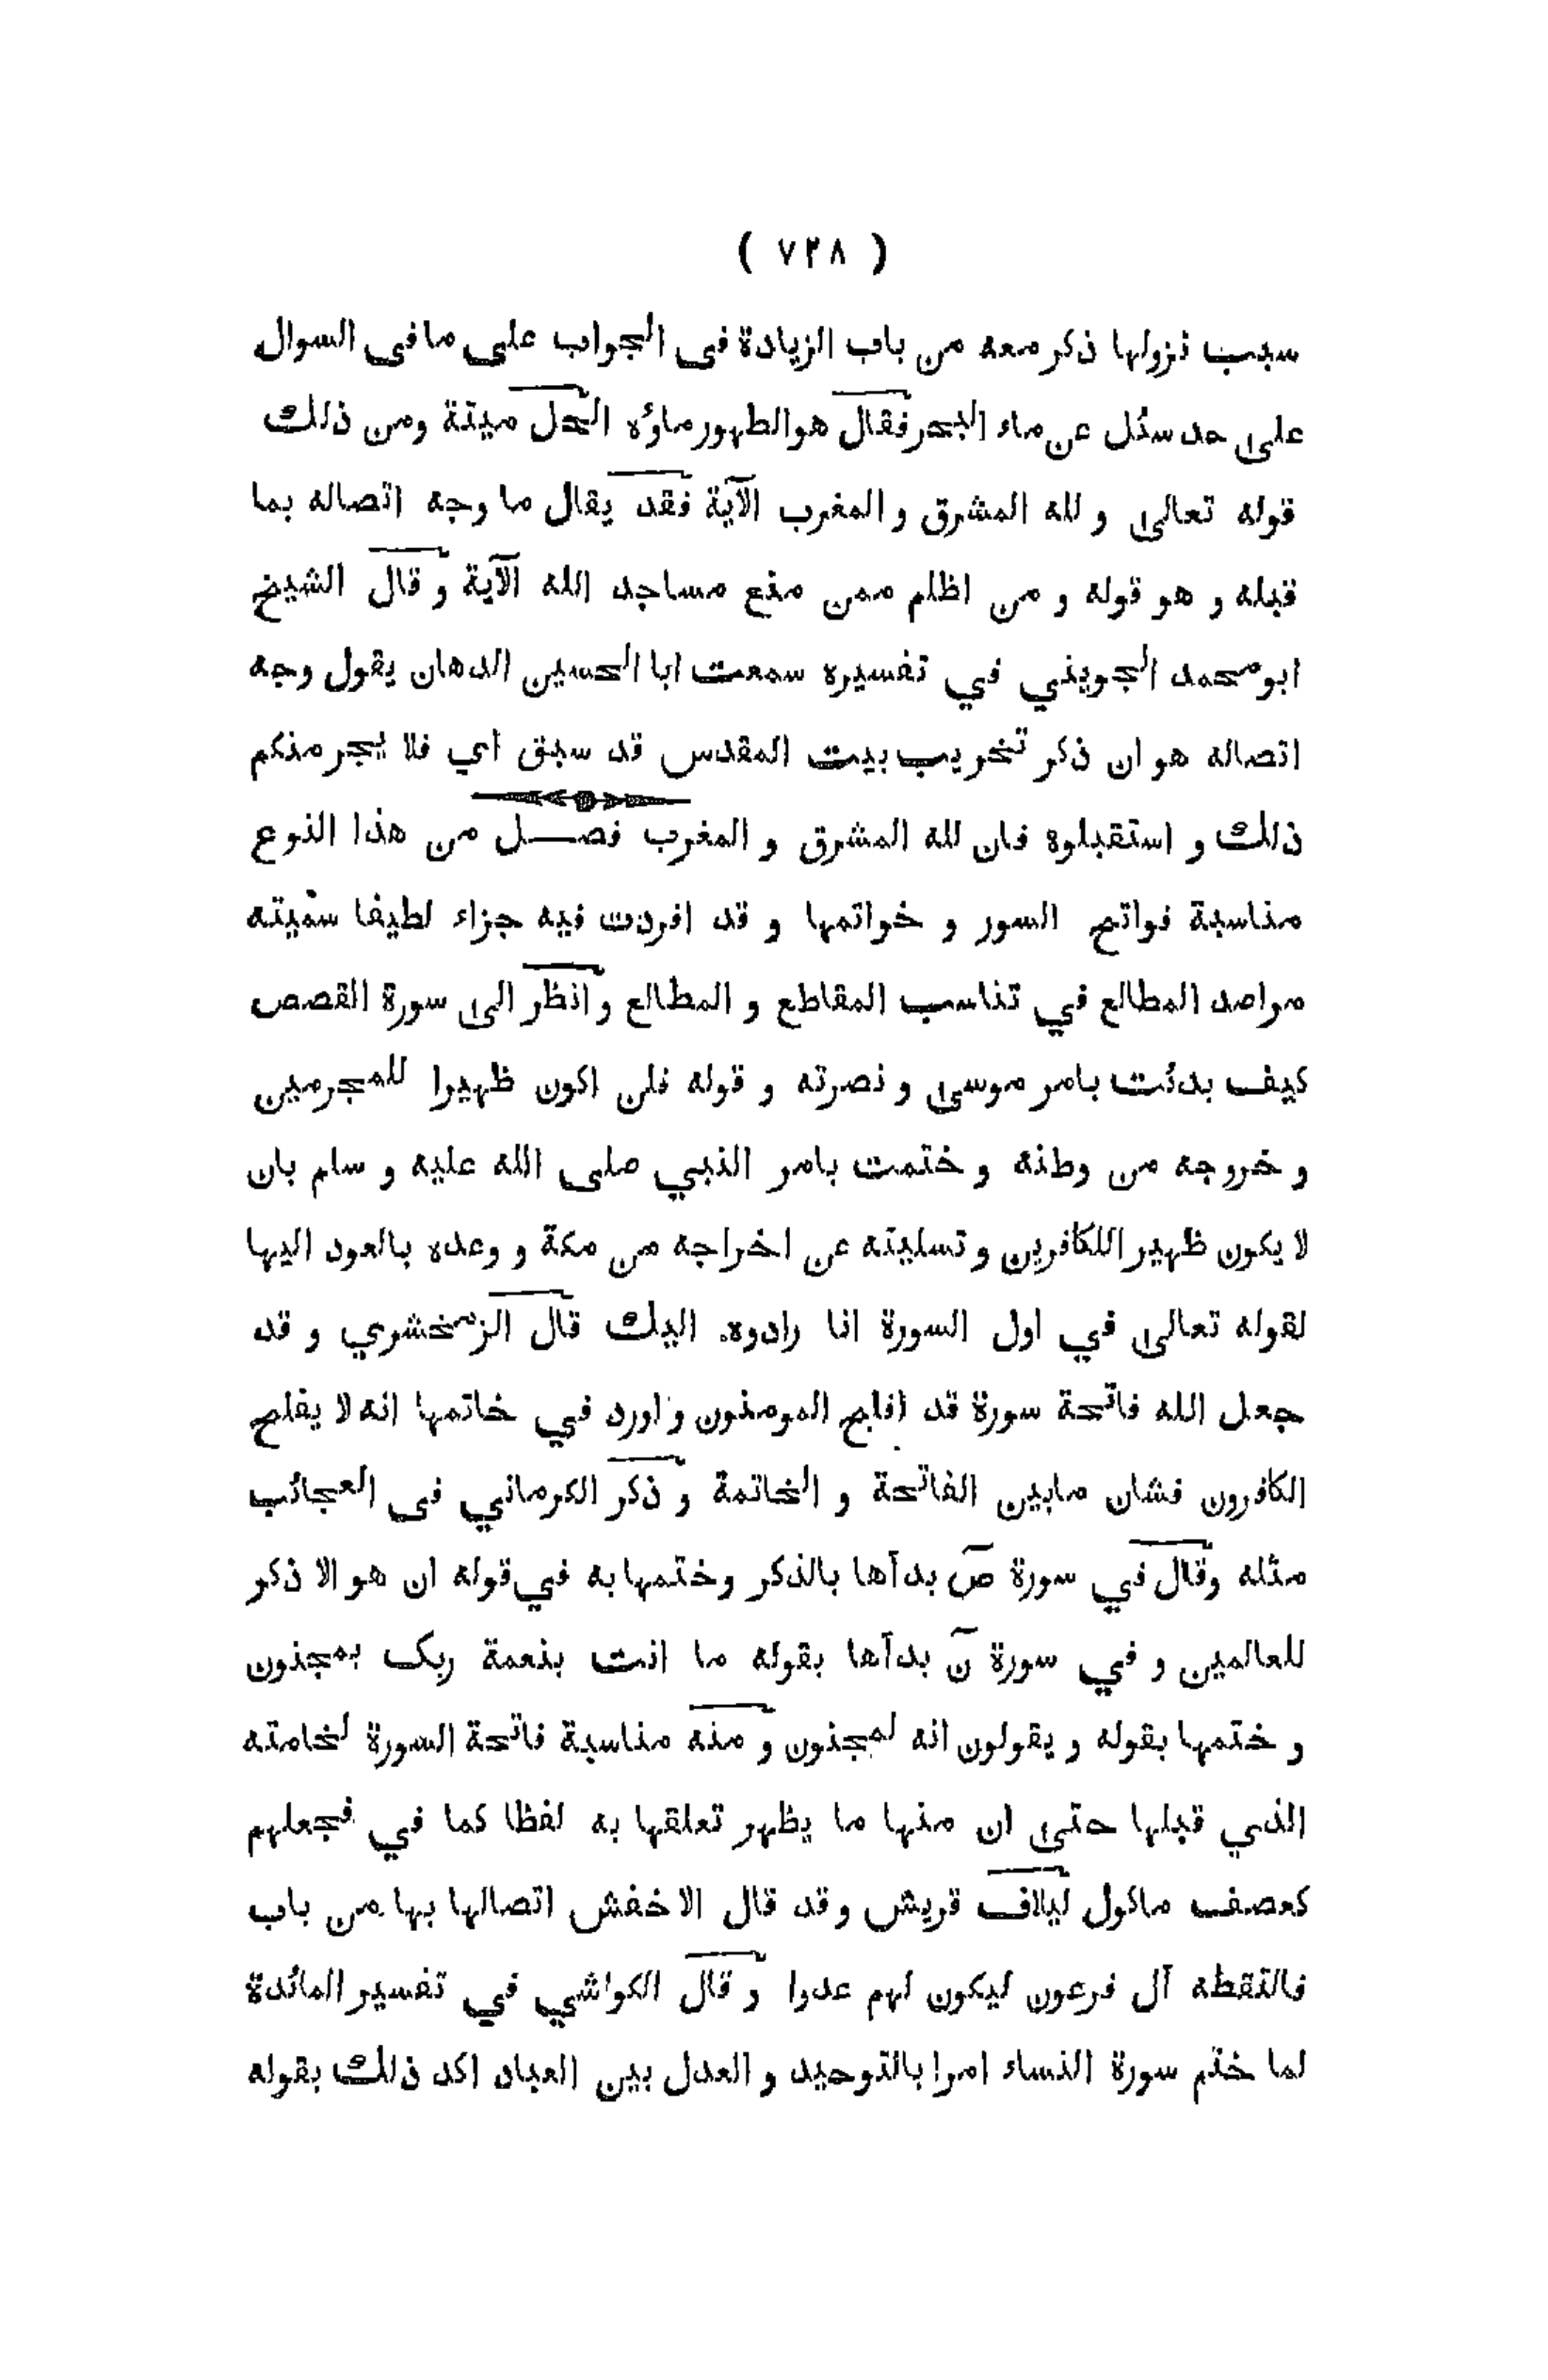 ( ٧٢٨ )
سبب نزولها ذكر معه من باب الزيادة فى الجواب على ما فى السوال
على حد سئل عن ماء البحر فقال هو الطهور ماؤه الحل ميتة ومن ذلك
قوله تعالى و لله المشرق و المغرب الآية فقد يقال ما وجه اتصاله بما
قبله و هو قوله و من اظلم ممن منع مساجد الله الآية و قال الشيخ
ابو محمد الجويني في تفسيره سمعت ابا الحسين الدهان يقول وجه
اتصاله هو ان ذكر تخريب بيت المقدس قد سبق اي فلا يجرمنكم
ذلك و استقبلوه فان لله المشرق و المغرب فصــل من هذا النوع
مناسبة فواتح السور و خواتمها و قد افردت فيه جزاء لطيفا سمّيته
مراصد المطالع في تناسب المقاطع و المطالع و انظر الى سورة القصص
كيف بدئت بامر موسى و نصرته و قوله فلن اكون ظهيرا للمجرمين
و خروجه من وطنه و ختمت بامر النبي صلى الله عليه و سلم بان
لا يكون ظهير اللكافرين و تسليته عن اخراجه من مكة و وعده بالعود اليها
لقوله تعالى في اول السورة انا رادوه اليك قال الزمخشري و قد
جعل الله فاتحة سورة قد افلح المومنون و اورد في خاتمها انه لا يفلح
الكافرون فشان مابين الفاتحة و الخاتمة و ذكر الكرماني فى العجائب
مثله وقال في سورة صٓ بدآها بالذكر وختمها به في قوله ان هو الا ذكر
للعالمين و في سورة نٓ بدآها بقوله ما انت بنعمة ربک بمجنون
و ختمها بقوله و يقولون انه لمجنون و منه مناسبة فاتحة السورة لخامته
الذي قبلها حتى ان منها ما يظهر تعلقها به لفظا كما في فجعلهم
كعصف ماكول ليلاف قريش و قد قال الاخفش اتصالها بها من باب
فالتقطه آل فرعون ليكون لهم عدوا و قال الكواشي في تفسير المائدة
لما ختم سورة النساء امرا بالتوحيد و العدل بين العباد اكد ذلك بقوله